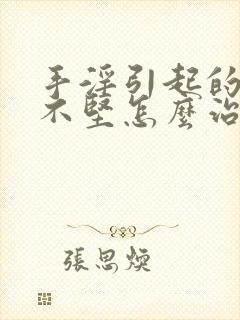 手淫引起的
不堅怎麼治
張思煥